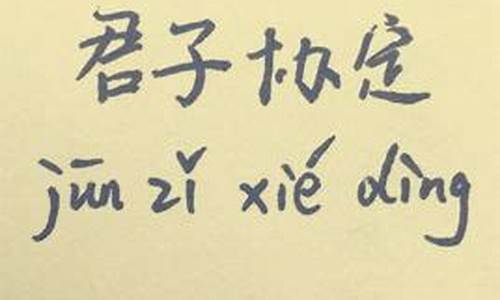 君子协定
jūn zǐ xié dìng